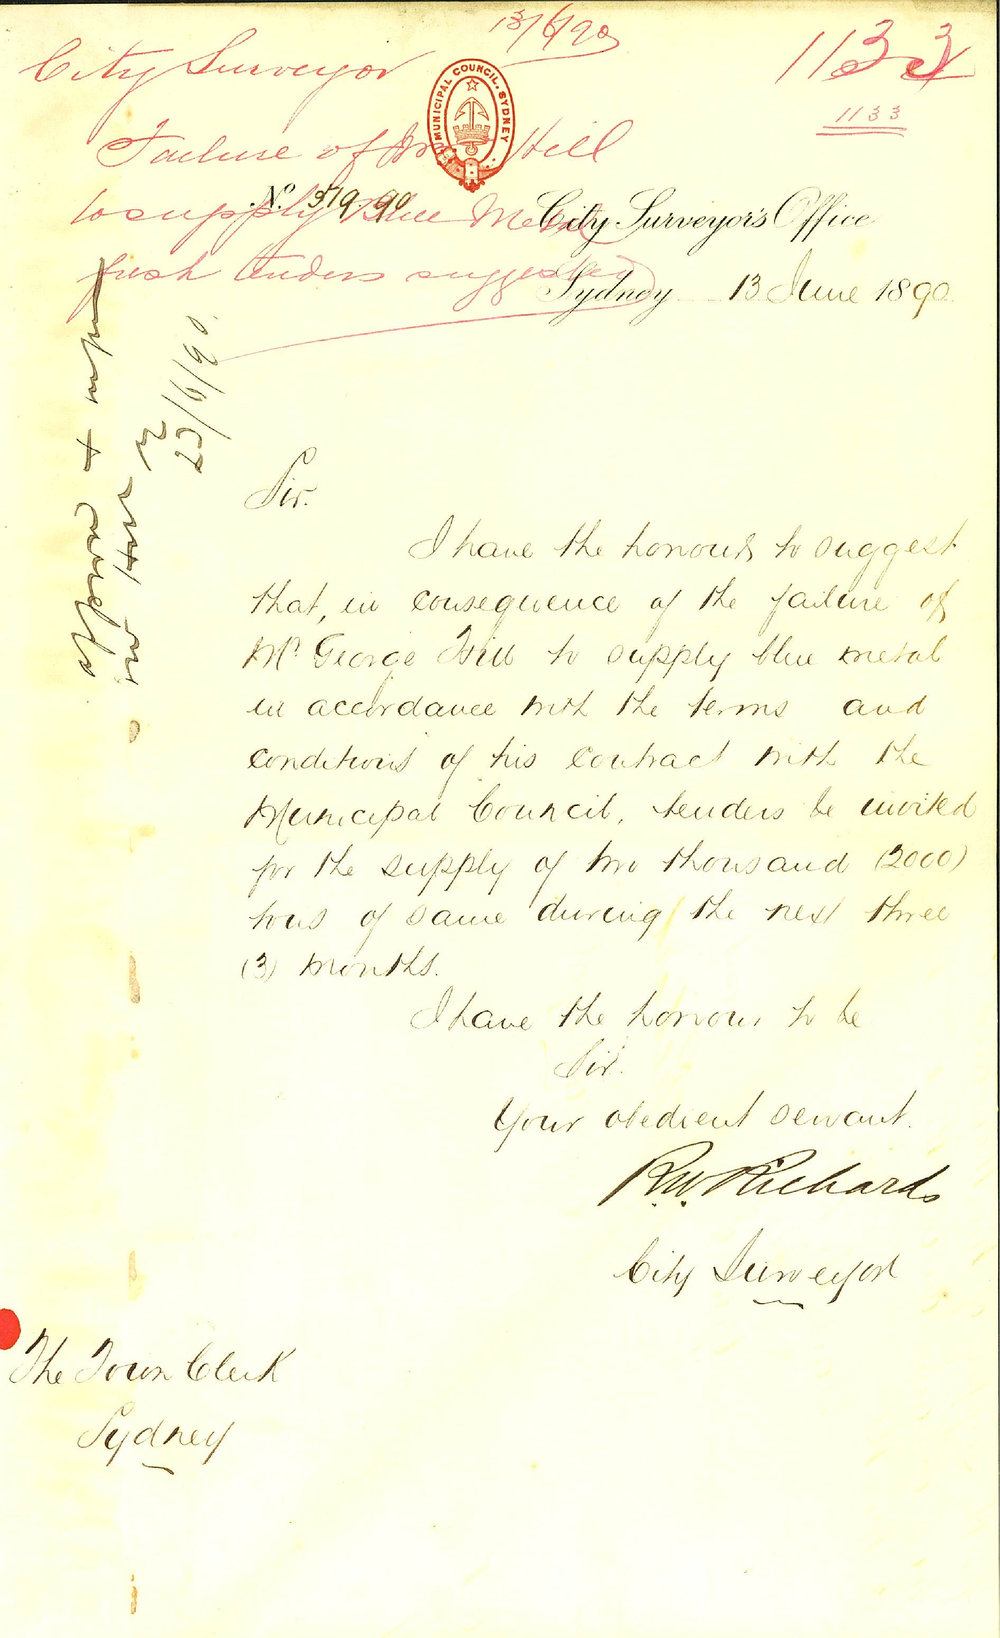 13/6/90
City Surveyor
1133
1133
MUNICIPAL COUNCIL. SYDNEY
Failure of Mr Hill
to supply Blue Metal
fresh tenders suggested
No. 519.90
City Surveyor's Office
Sydney 13 June 1890
approved
23/6/90
Sir.
I have the honour to suggest
that, in consequence of the failure of
Mr. George Hill to supply blue metal
in accordance with the terms and
conditions of his contract with the
Municipal Council, tenders be invited
for the supply of two thousand (2000)
tons of same during the next three
(3) months.
I have the honour to be
Sir.
Your obedient servant.
R.W. Richards
City Surveyor
The Town Clerk
Sydney